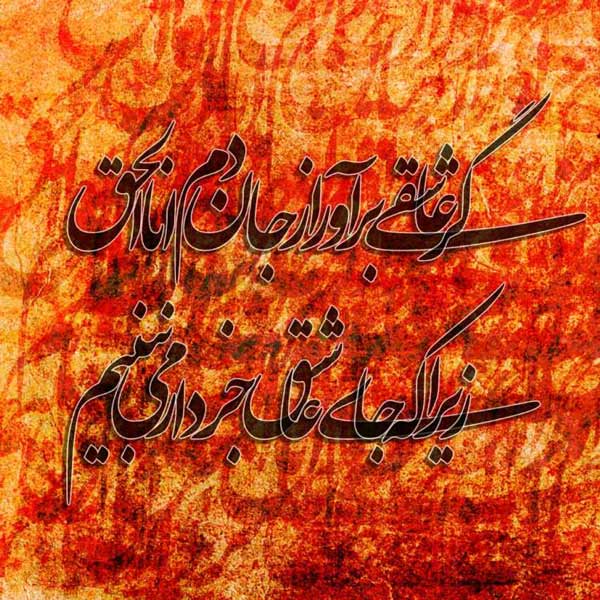 گر عاشقی برآور از جان دم اناالحق
زیرا که جای عاشق جز دار می نبینیم